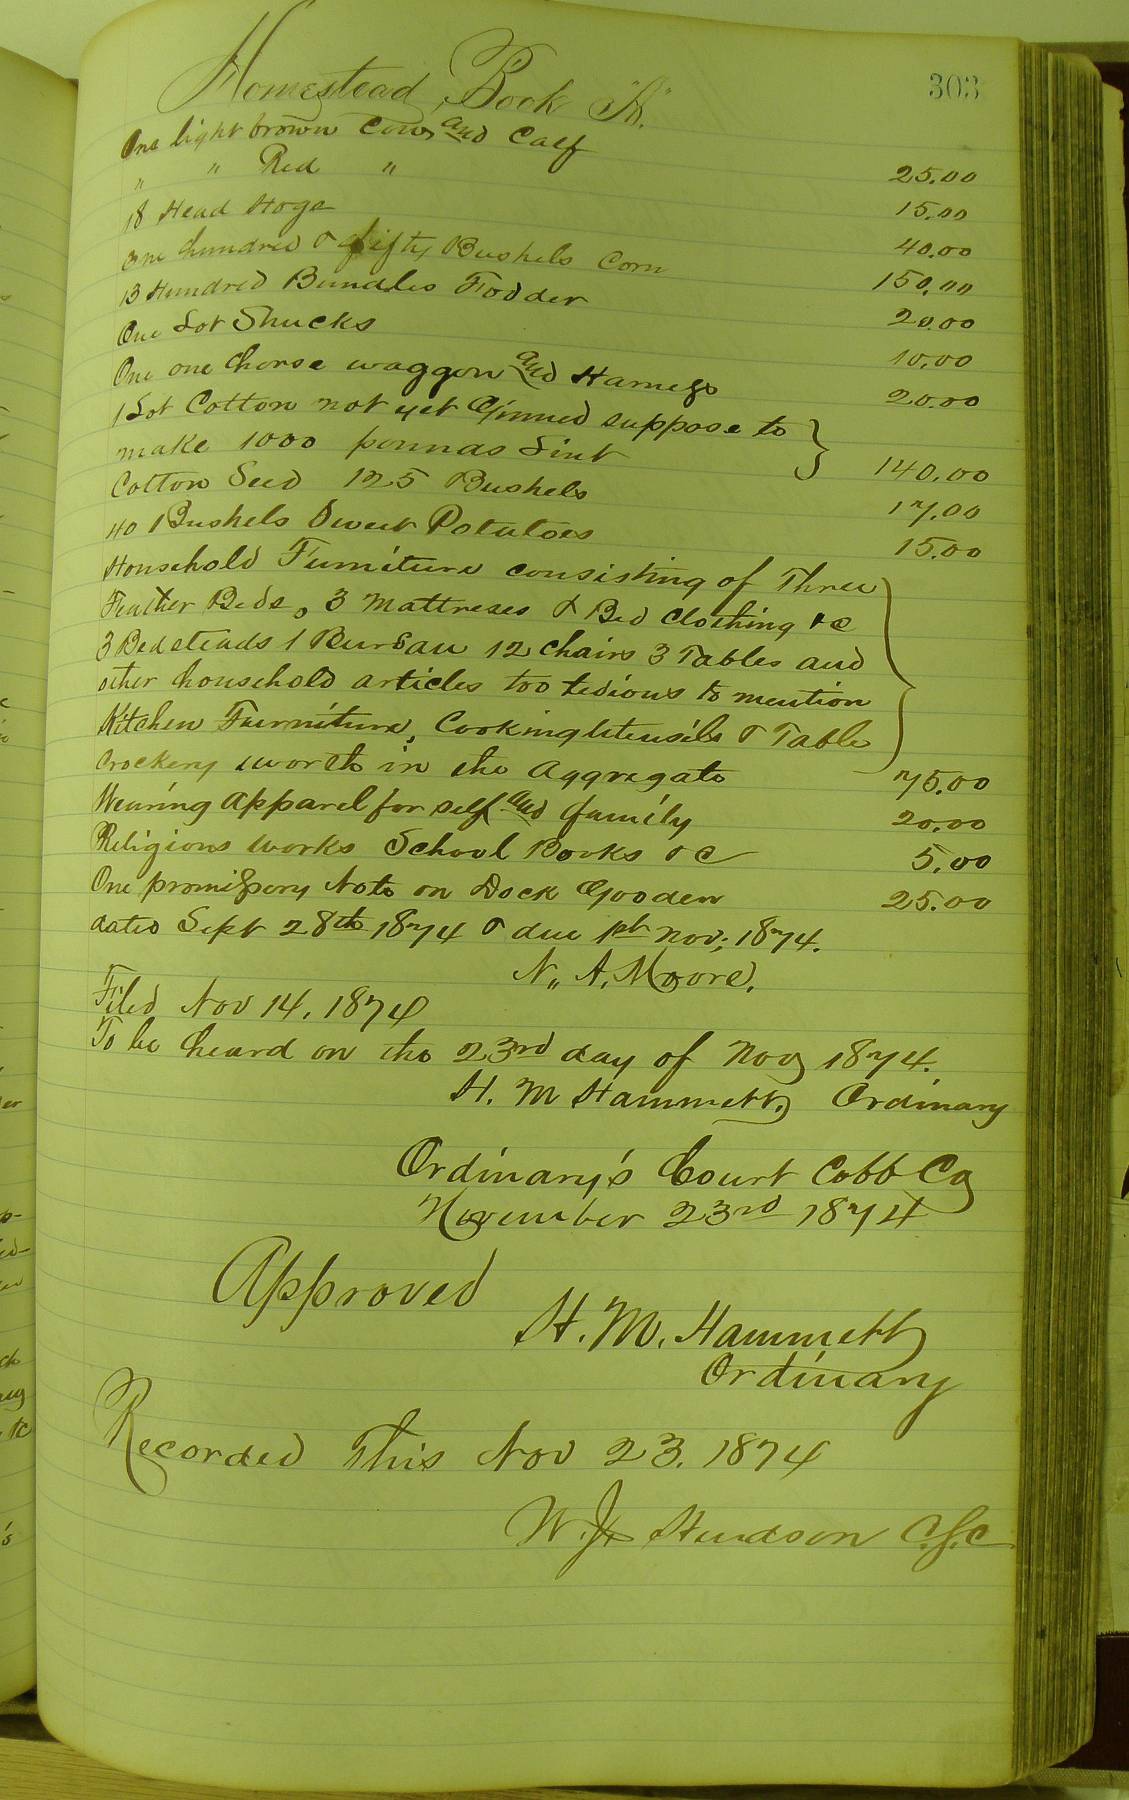 Homestead Book "A." 303
One light brown Cow and Calf 25.00
" " Red " 15.00
18 Head Hogs 40.00
One hundred & fifty Bushels Corn 150.00
13 Hundred Bundles Fodder 20.00
One Lot Shucks 10.00
One one horse waggon and Harness 20.00
1 Lot Cotton not yet Ginned suppose to
make 1000 pounds Lint 140.00
Cotton Seed 125 Bushels 17.00
40 Bushels Sweet Potatoes 15.00
Household Furniture consisting of Three
Feather Beds, 3 Mattreses & Bed clothing &c
3 Bedsteads 1 Bureau 12 chairs 3 Tables and
other household articles too tedious to mention
Kitchen Furniture, Cooking Utensils & Table
Crockery worth in the Aggregate 75.00
Wearing Apparel for self and family 20.00
Religious works School Books &c 5.00
One promissory Note on Dock Gooden 25.00
dated Sept 28th 1874 & due 1st Nov; 1874.
N,, A. Moore.
Filed Nov 14. 1874
To be heard on the 23rd day of Nov 1874.
H. M Hammett. Ordinary
Ordinary's Court Cobb Co
November 23rd 1874
Approved
H. M. Hammett
Ordinary
Recorded This Nov 23. 1874
Hudson C.S.C